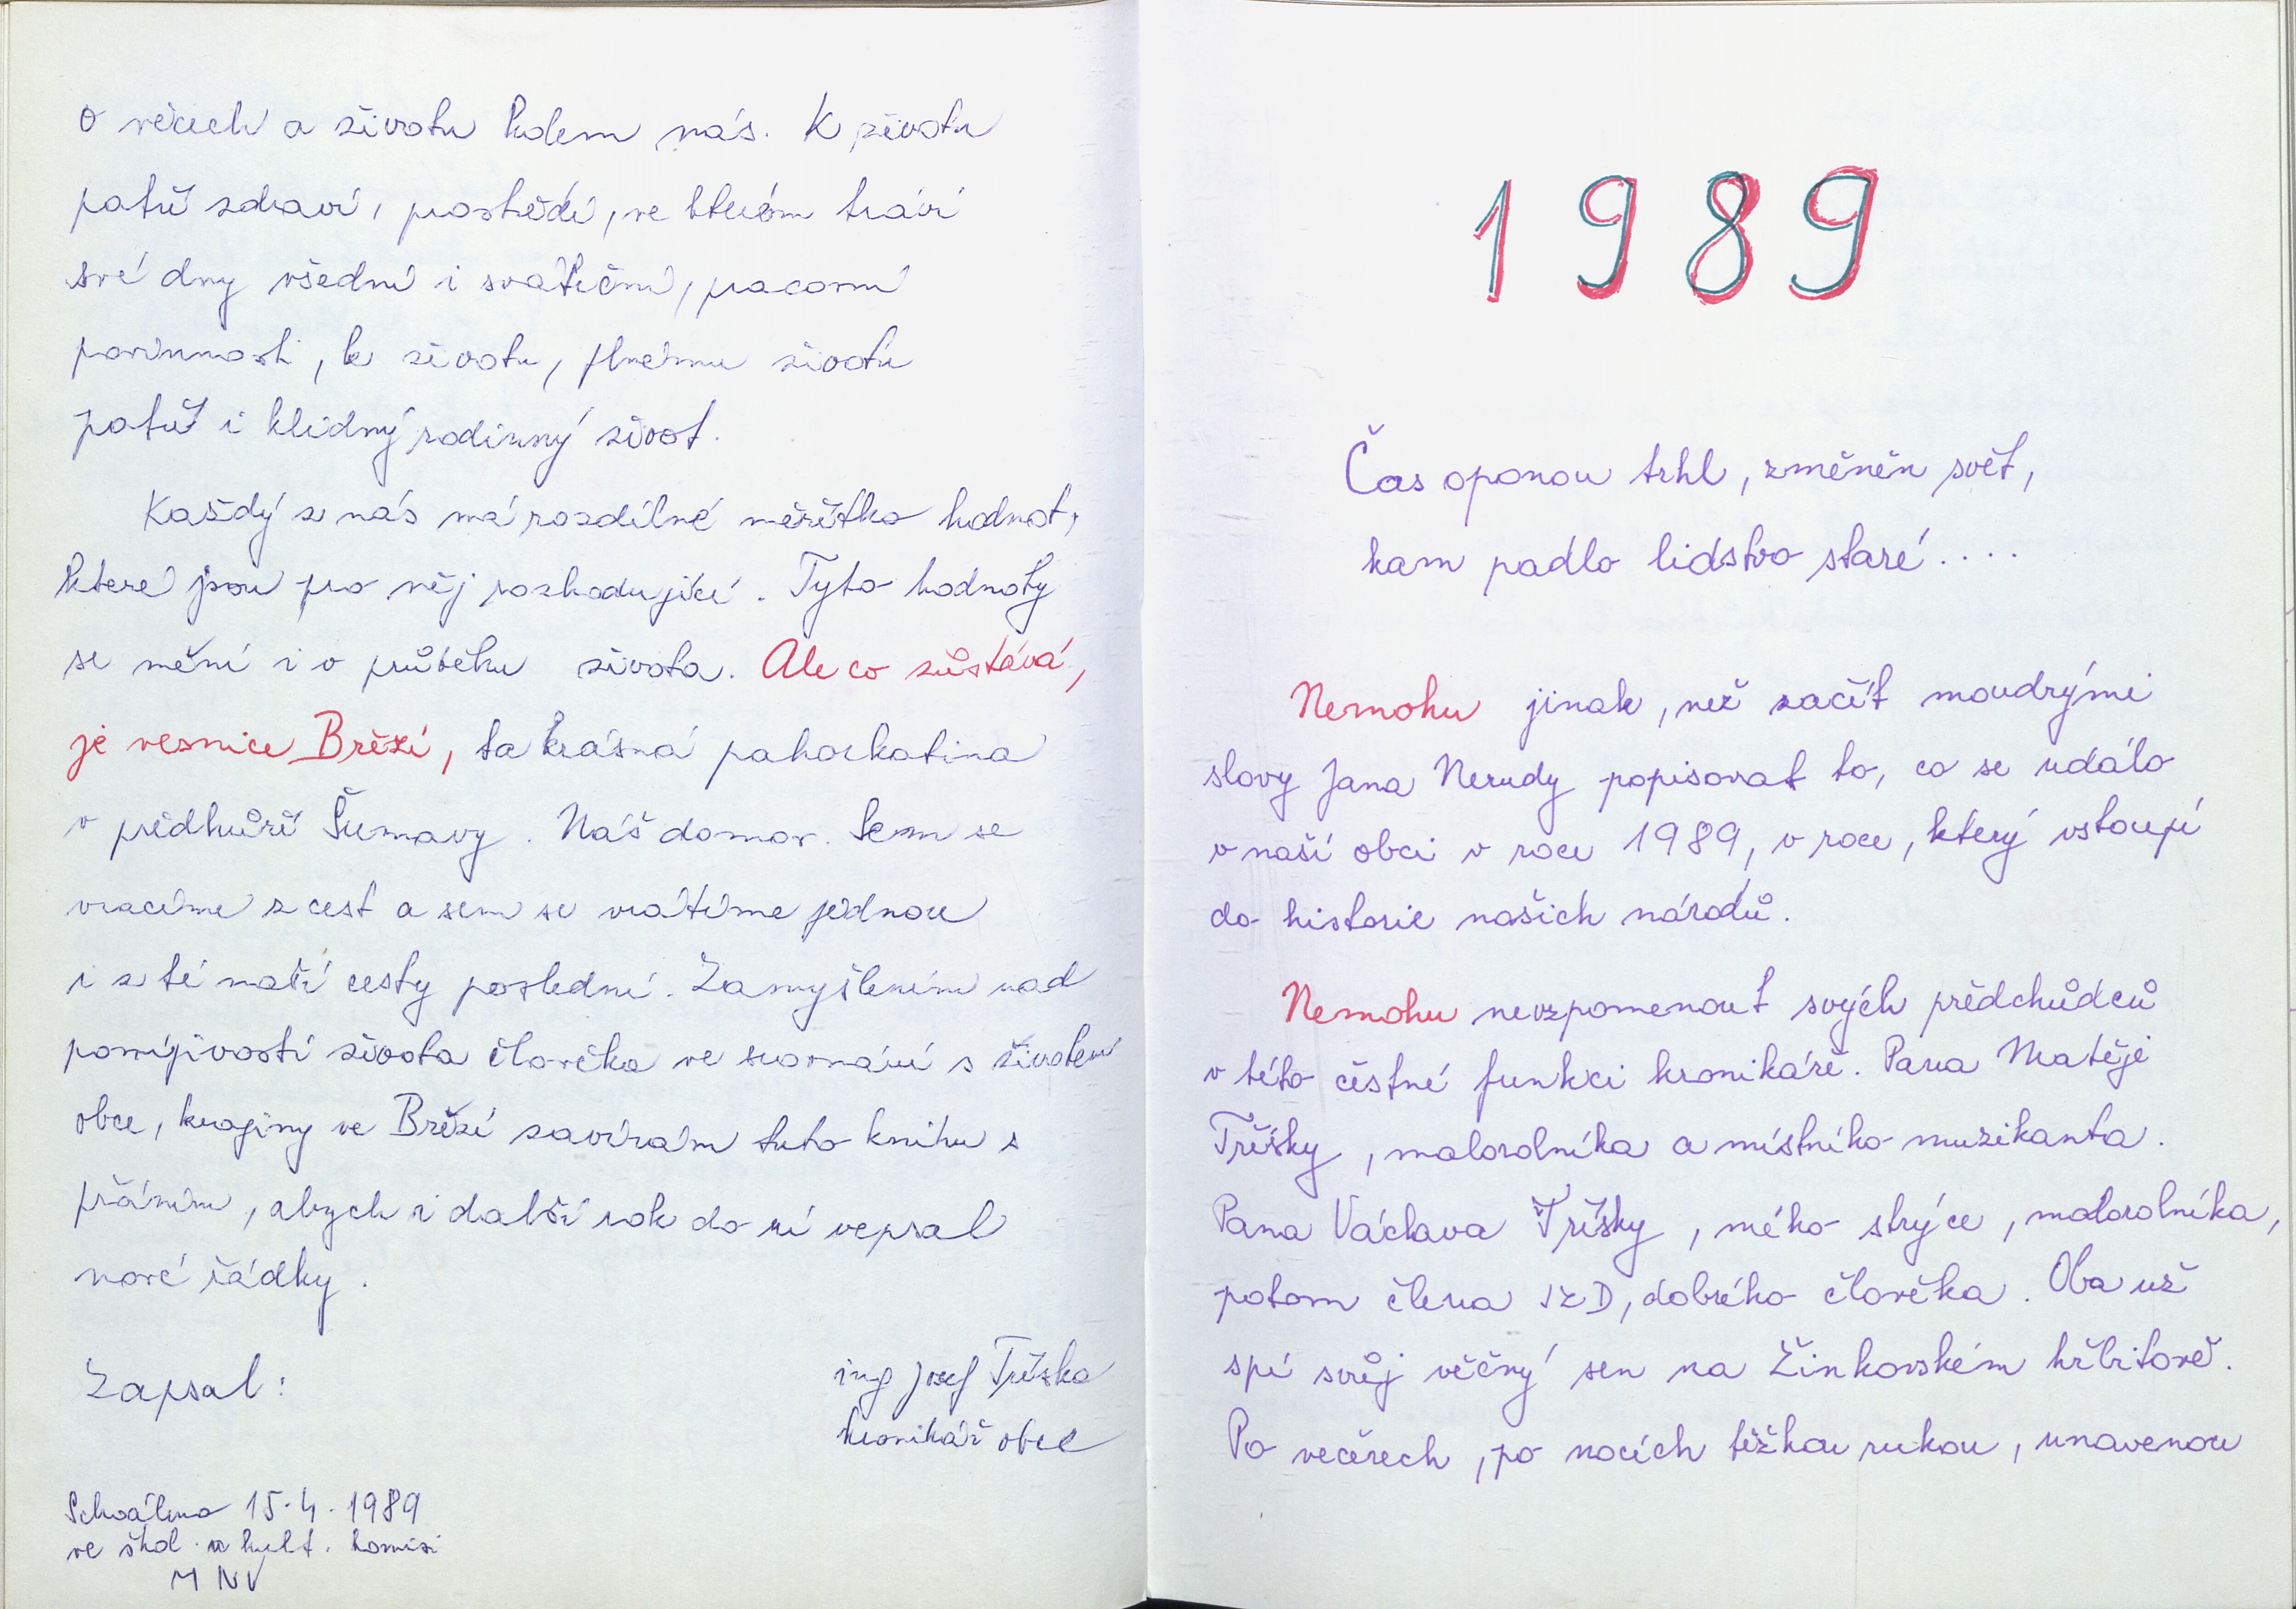 o věcech a životu kolem nás. K životu
patří zdraví, prostředí, ve kterém tráví
své dny všední i sváteční, pracovní
povinnosti, k životu, plnému životu
patří i klidný rodinný život.
Každý z nás má rozdílné měřítko hodnot,
které jsou pro něj rozhodující. Tyto hodnoty
se mění i v průběhu života. Ale co zůstává,
je vesnice Březí, ta krásná pahorkatina
v předhůří Šumavy. Náš domov. Sem se
vracíme z cest a sem se vrátíme jednou
i z té naší cesty poslední. Zamyšlením nad
pomíjivostí života člověka ve srovnání s životem
obce, krajiny ve Březí zavírám tuto knihu s
přáním, abych i další rok do ní vepsal
nové řádky.
Zapsal:
ing Josef Tříska
kronikář obce
Schváleno 15.4.1989
ve škol. a kult. komisi
MNV
1989
Čas oponou trhl, změněn svět,
kam padlo lidstvo staré....
Nemohu jinak, než začít moudrými
slovy Jana Nerudy popisovat to, co se událo
v naší obci v roce 1989, v roce, který vstoupí
do historie našich národů.
Nemohu nevzpomenout svých předchůdců
v této čéstné funkci kronikáře. Pana Matěje
Třísky, malorolníka a místního muzikanta.
Pana Václava Třísky, mého strýce, malorolníka,
potom člena JZD, dobrého člověka. Oba už
spí svůj věčný sen na Žinkovském hřbitově.
Po večerech, po nocích těžkou rukou, unavenou